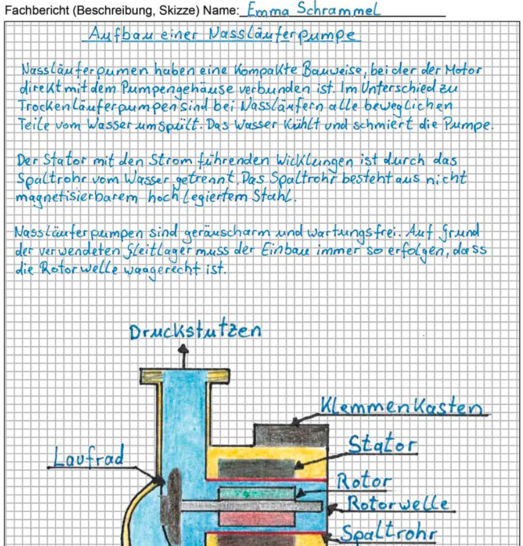 Fachbericht (Beschreibung, Skizze) Name: Emma Schrammel
Aufbau einer Nassläuferpumpe
Nassläuferpumen haben eine kompakte Bauweise, bei der der Motor
direkt mit dem Pumpengehäuse verbunden ist. Im Unterschied zu
Trockenläuferpumpen sind bei Nassläufern alle beweglichen
Teile vom Wasser umspült. Das Wasser kühlt und schmiert die Pumpe.
Der Stator mit den Strom führenden Wicklungen ist durch das
Spaltrohr vom Wasser getrennt. Das Spaltrohr besteht aus nicht
magnetisierbarem hoch legiertem Stahl.
Nassläuferpumpen sind geräuscharm und wartungsfrei. Auf Grund
der verwendeten Gleitlager muss der Einbau immer so erfolgen, dass
die Rotorwelle waagerecht ist.
Druckstutzen
Klemmenkasten
Stator
Laufrad
Rotor
Rotorwelle
Spaltrohr